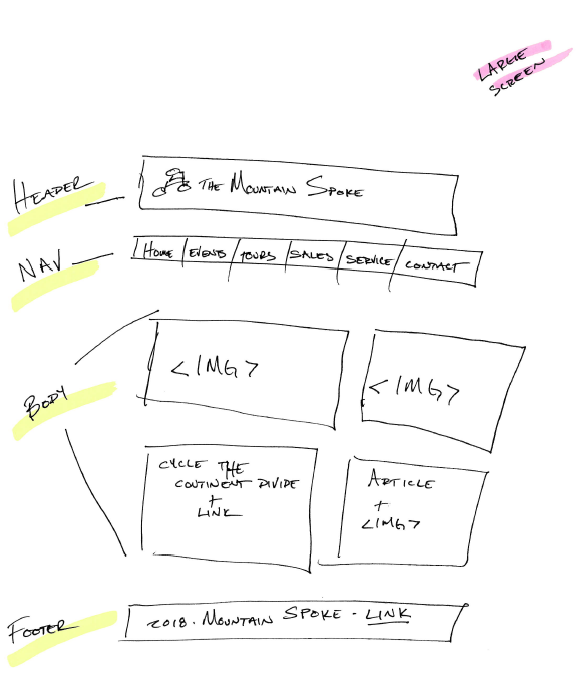 LARGE
SCREEN
HEADER
THE MOUNTAIN SPOKE
NAV
HOME EVENTS TOURS SALES SERVICE CONTACT
BODY
<IMG>
<IMG>
CYCLE THE
CONTINENT DIVIDE
+
LINK
ARTICLE
+
<IMG>
FOOTER
2018 · MOUNTAIN SPOKE - LINK